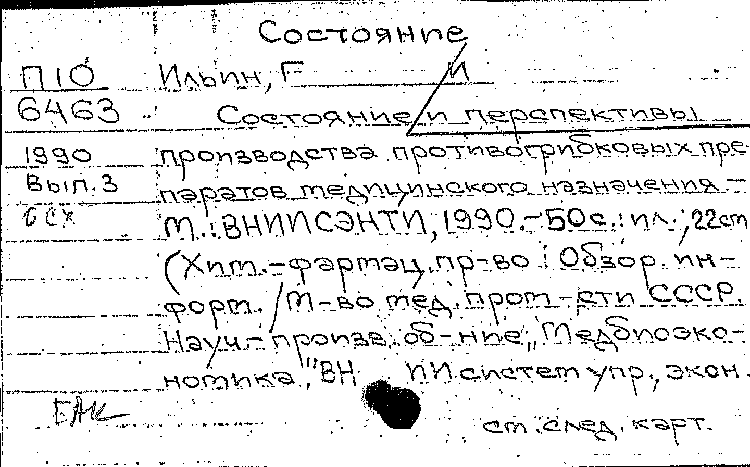 Состояние
П10 Ильин, Г И
6463 Состояние и перспективы
1990 производства противогрибковых пре-
Вып. 3 паратов медицинского назначения. –
М.: ВНИИСЭНТИ, 1990. – 50 с.: ил.; 22 см
(Хим.-фармац. пр-во: Обзор. ин-
форм. / М-во мед. пром-сти СССР.
Науч.-произв. об-ние „Медбиоэко-
номика", ВНИИ систем упр., экон.
ЕАК
см. след. карт.